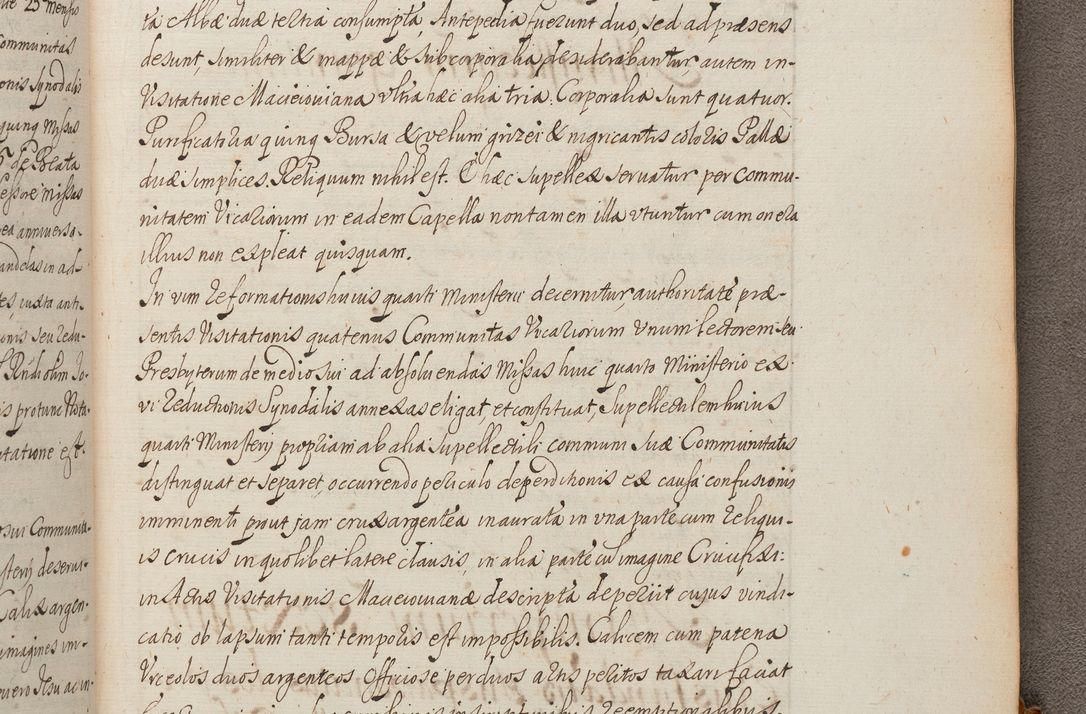 ue 25 mensis
Communitas
onis Synodalis
quinq Missas
de Beata
essore Missas
ea anniversa-
andelas in ad-
tes, iuxta anti-
onis seu Redu-
is protunc Nota-
itatione est.
sui Communita-
sterij deserui-
Calix argen-
imagines im-
ta Albæ duæ tertia consumpta, Antepedia fuerunt duo, sed ad præsens
desunt, similiter & mappæ & subcorporalia desiderabantur, autem in
Visitatione Macieiouiana vltra hæc alia tria. Corporalia sunt quatuor.
Purificatoria quinq Bursa & velum grizei & nigricantis coloris Pallæ
duæ simplices. Reliquum nihil est. E hæc supellex seruatur per Commu-
nitatem Vicariorum in eadem Capella non tamen illa vtuntur cum onera
illius non expleat quisquam.
In vim reformationis huius quarti Ministerii decernitur, authoritate præ-
sentis Visitationis quatenus Communitas Vicariorum vnum lectorem seu
Presbyterum de medio sui ad absoluendas Missas huic quarto Ministerio ex
vi Reductionis Synodalis annexas eligat, et constituat, Supellectilem huius
quarti Ministerij propriam ab alia supellectili communi suæ Communitatis
distinguat et separet, occurrendo periculo deperditionis ex causa confusionis
imminenti prout jam crux argentea inaurata in vna parte cum Reliqui-
is crucis in quolibet latere clausis, in alia parte cū imagine Crucifixi
in Actis Visitationis Macieiouianæ descripta deperiit cujus vindi-
catio ob lapsum tanti temporis est impossibilis. Calicem cum patena
Vrceolos duos argenteos Officiose per duos artis peritos taxari faciat